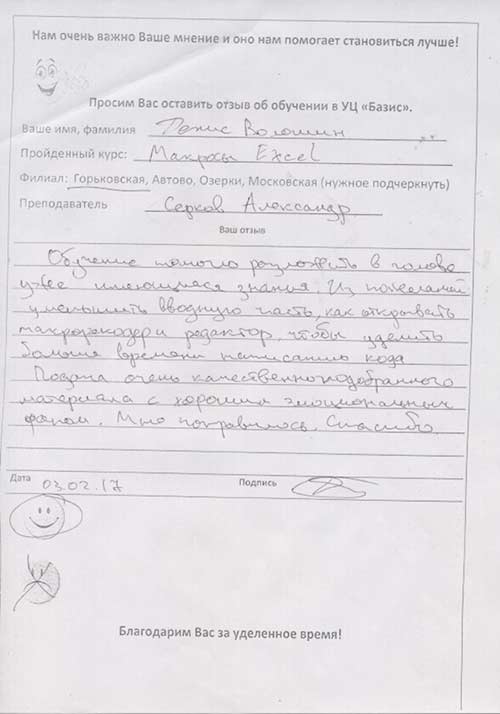 Нам очень важно Ваше мнение и оно нам помогает становиться лучше!
Просим Вас оставить отзыв об обучении в УЦ «Базис».
Ваше имя, фамилия Денис Волошин
Пройденный курс: Макросы Excel
Филиал: Горьковская, Автово, Озерки, Московская (нужное подчеркнуть)
Преподаватель Серков Александр
Ваш отзыв
Обучение помогло разложить в голове
уже имеющиеся знания. Из пожеланий
уменьшить вводную часть, как открывать
макрорекодер и редактор, чтобы уделить
больше времени написанию кода
Подача очень качественно подобранного
материала с хорошим эмоциональным
фоном. Мне понравилось. Спасибо.
Дата 03.02.17 Подпись
Благодарим Вас за уделенное время!